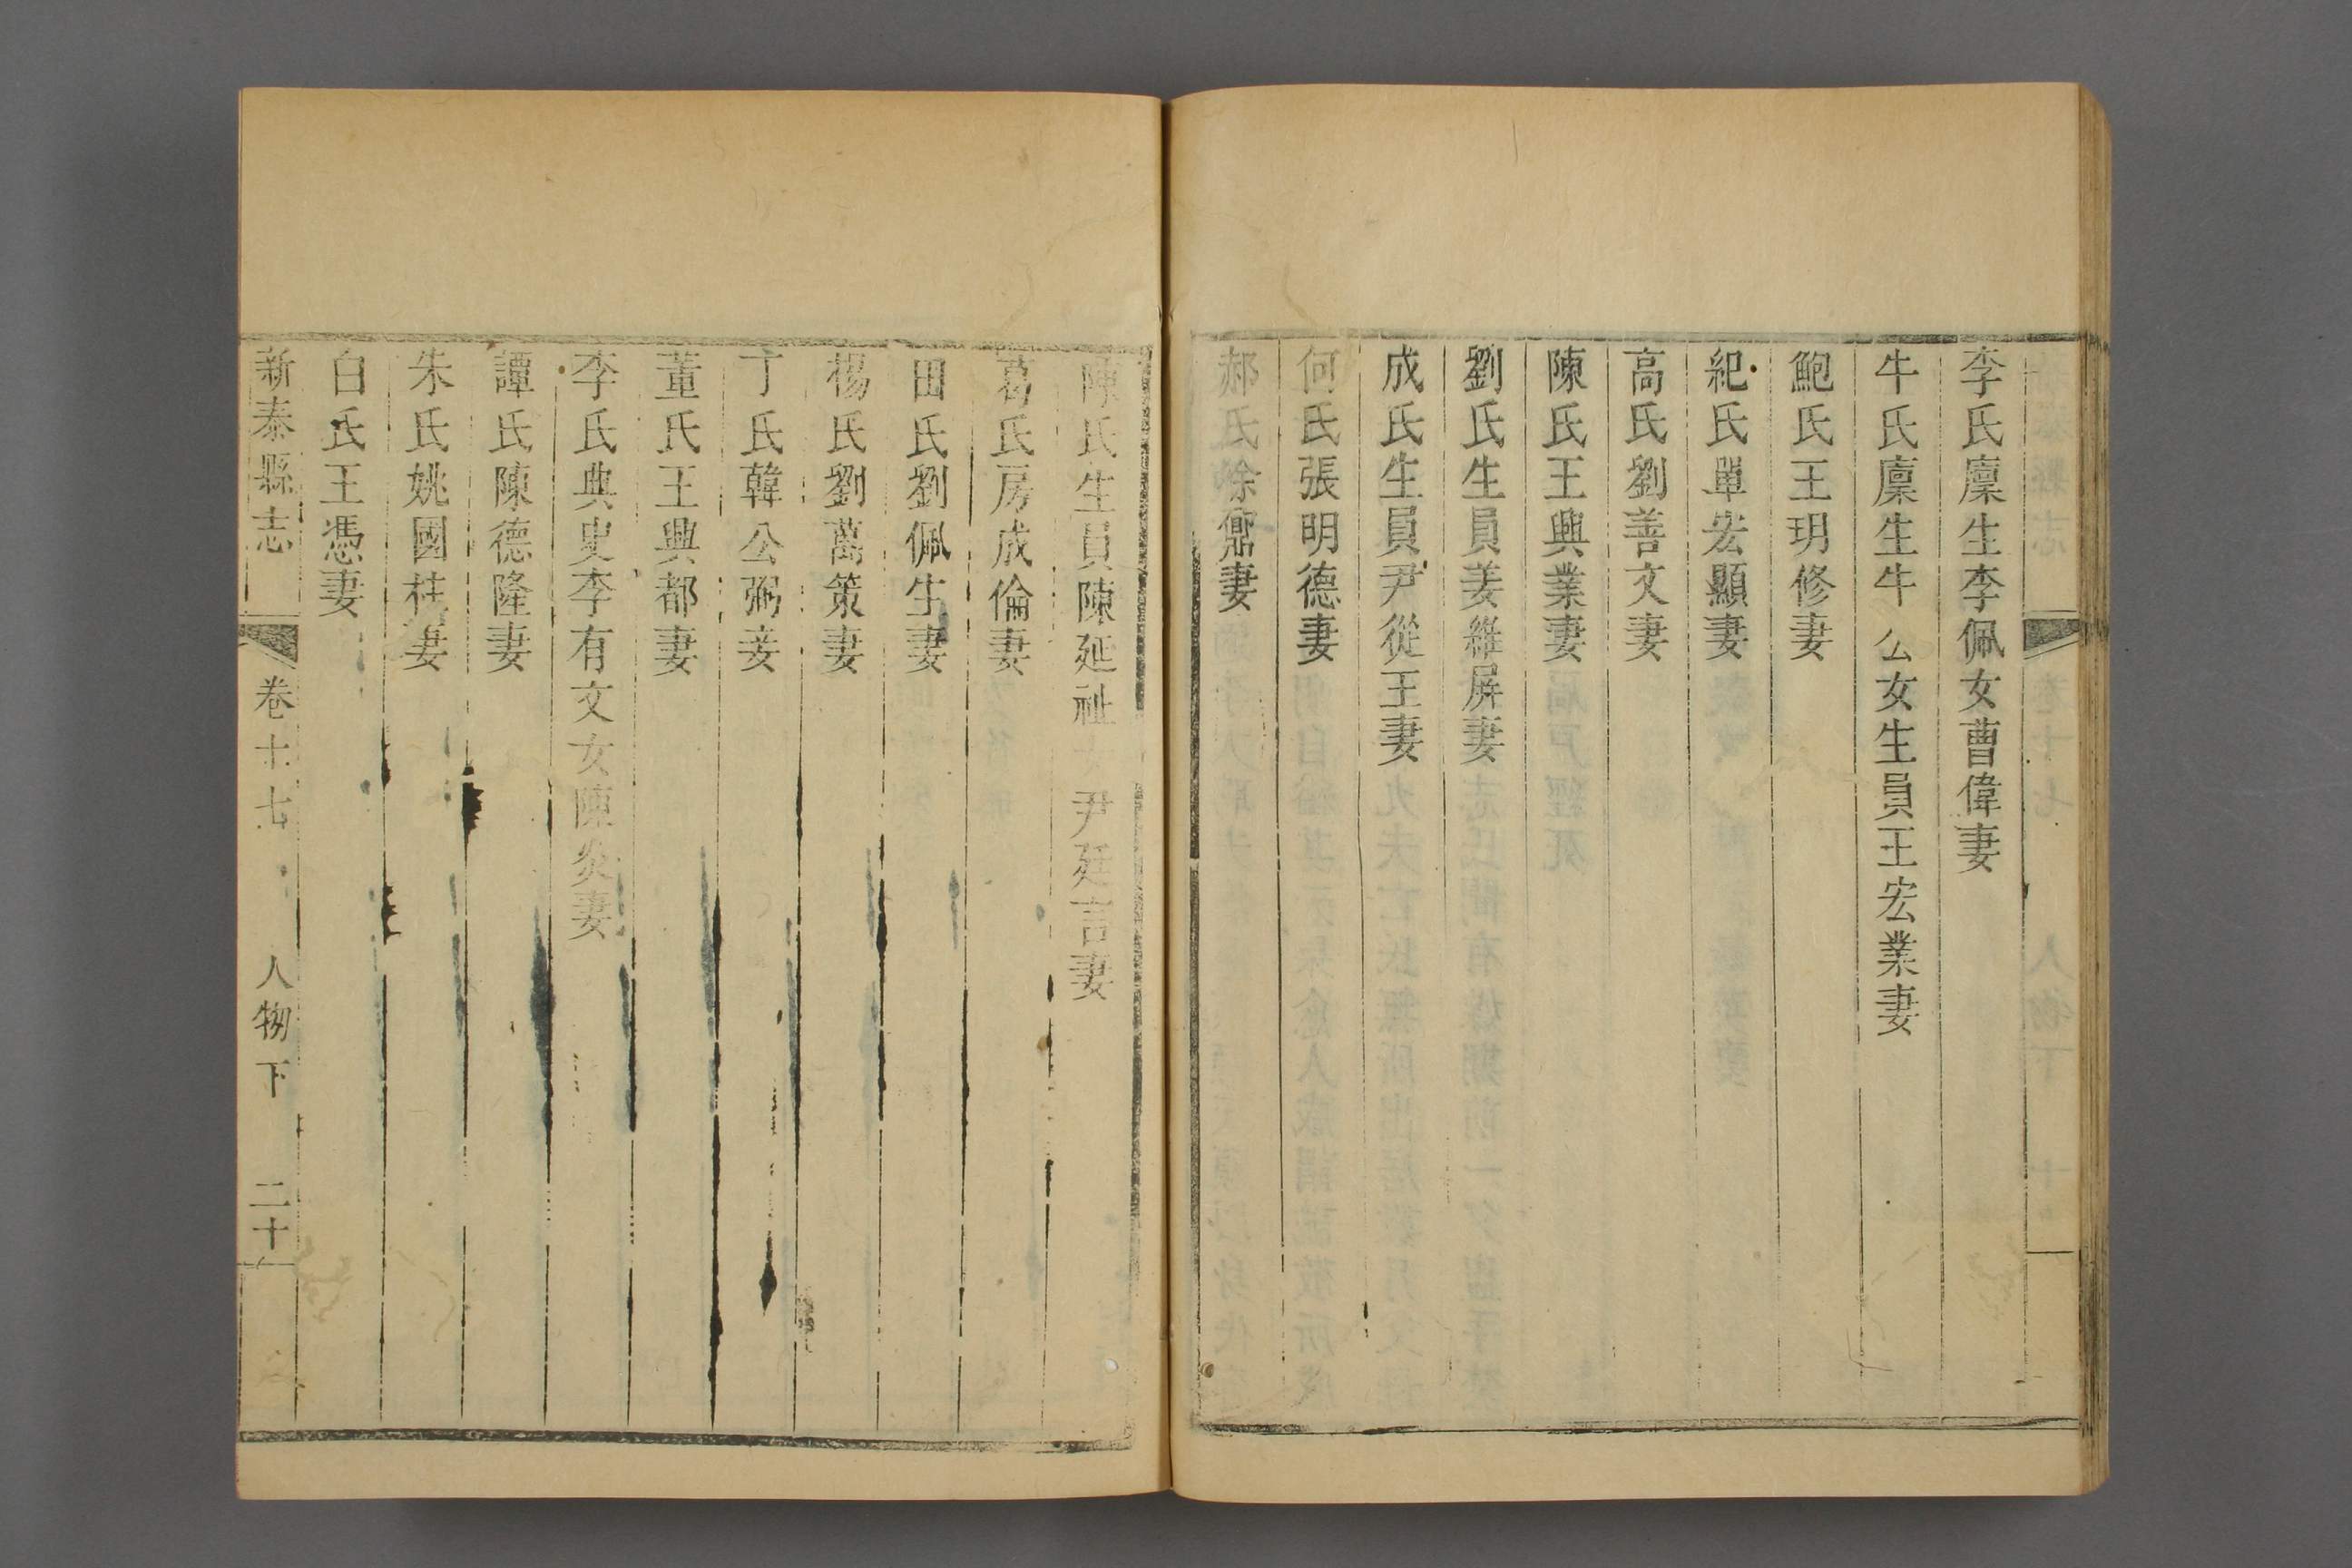 李氏廩生李佩女曹偉妻
牛氏廩生牛 公女生員王宏業妻
鮑氏王玥修妻
紀氏單宏顯妻
高氏劉善文妻
陳氏王興業妻
劉氏生員姜維屏妻
成氏生員尹從王妻
何氏張明德妻
郝氏徐鼐妻
陳氏生員陳延祉女尹廷言妻
葛氏房成倫妻
田氏劉佩生妻
楊氏劉萬策妻
丁氏韓公弼妾
董氏王興都妻
李氏典史李有文女陳炎妻
譚氏陳德隆妻
朱氏姚國柱妻
白氏王憑妻
新泰縣志 卷十七 人物下 二十